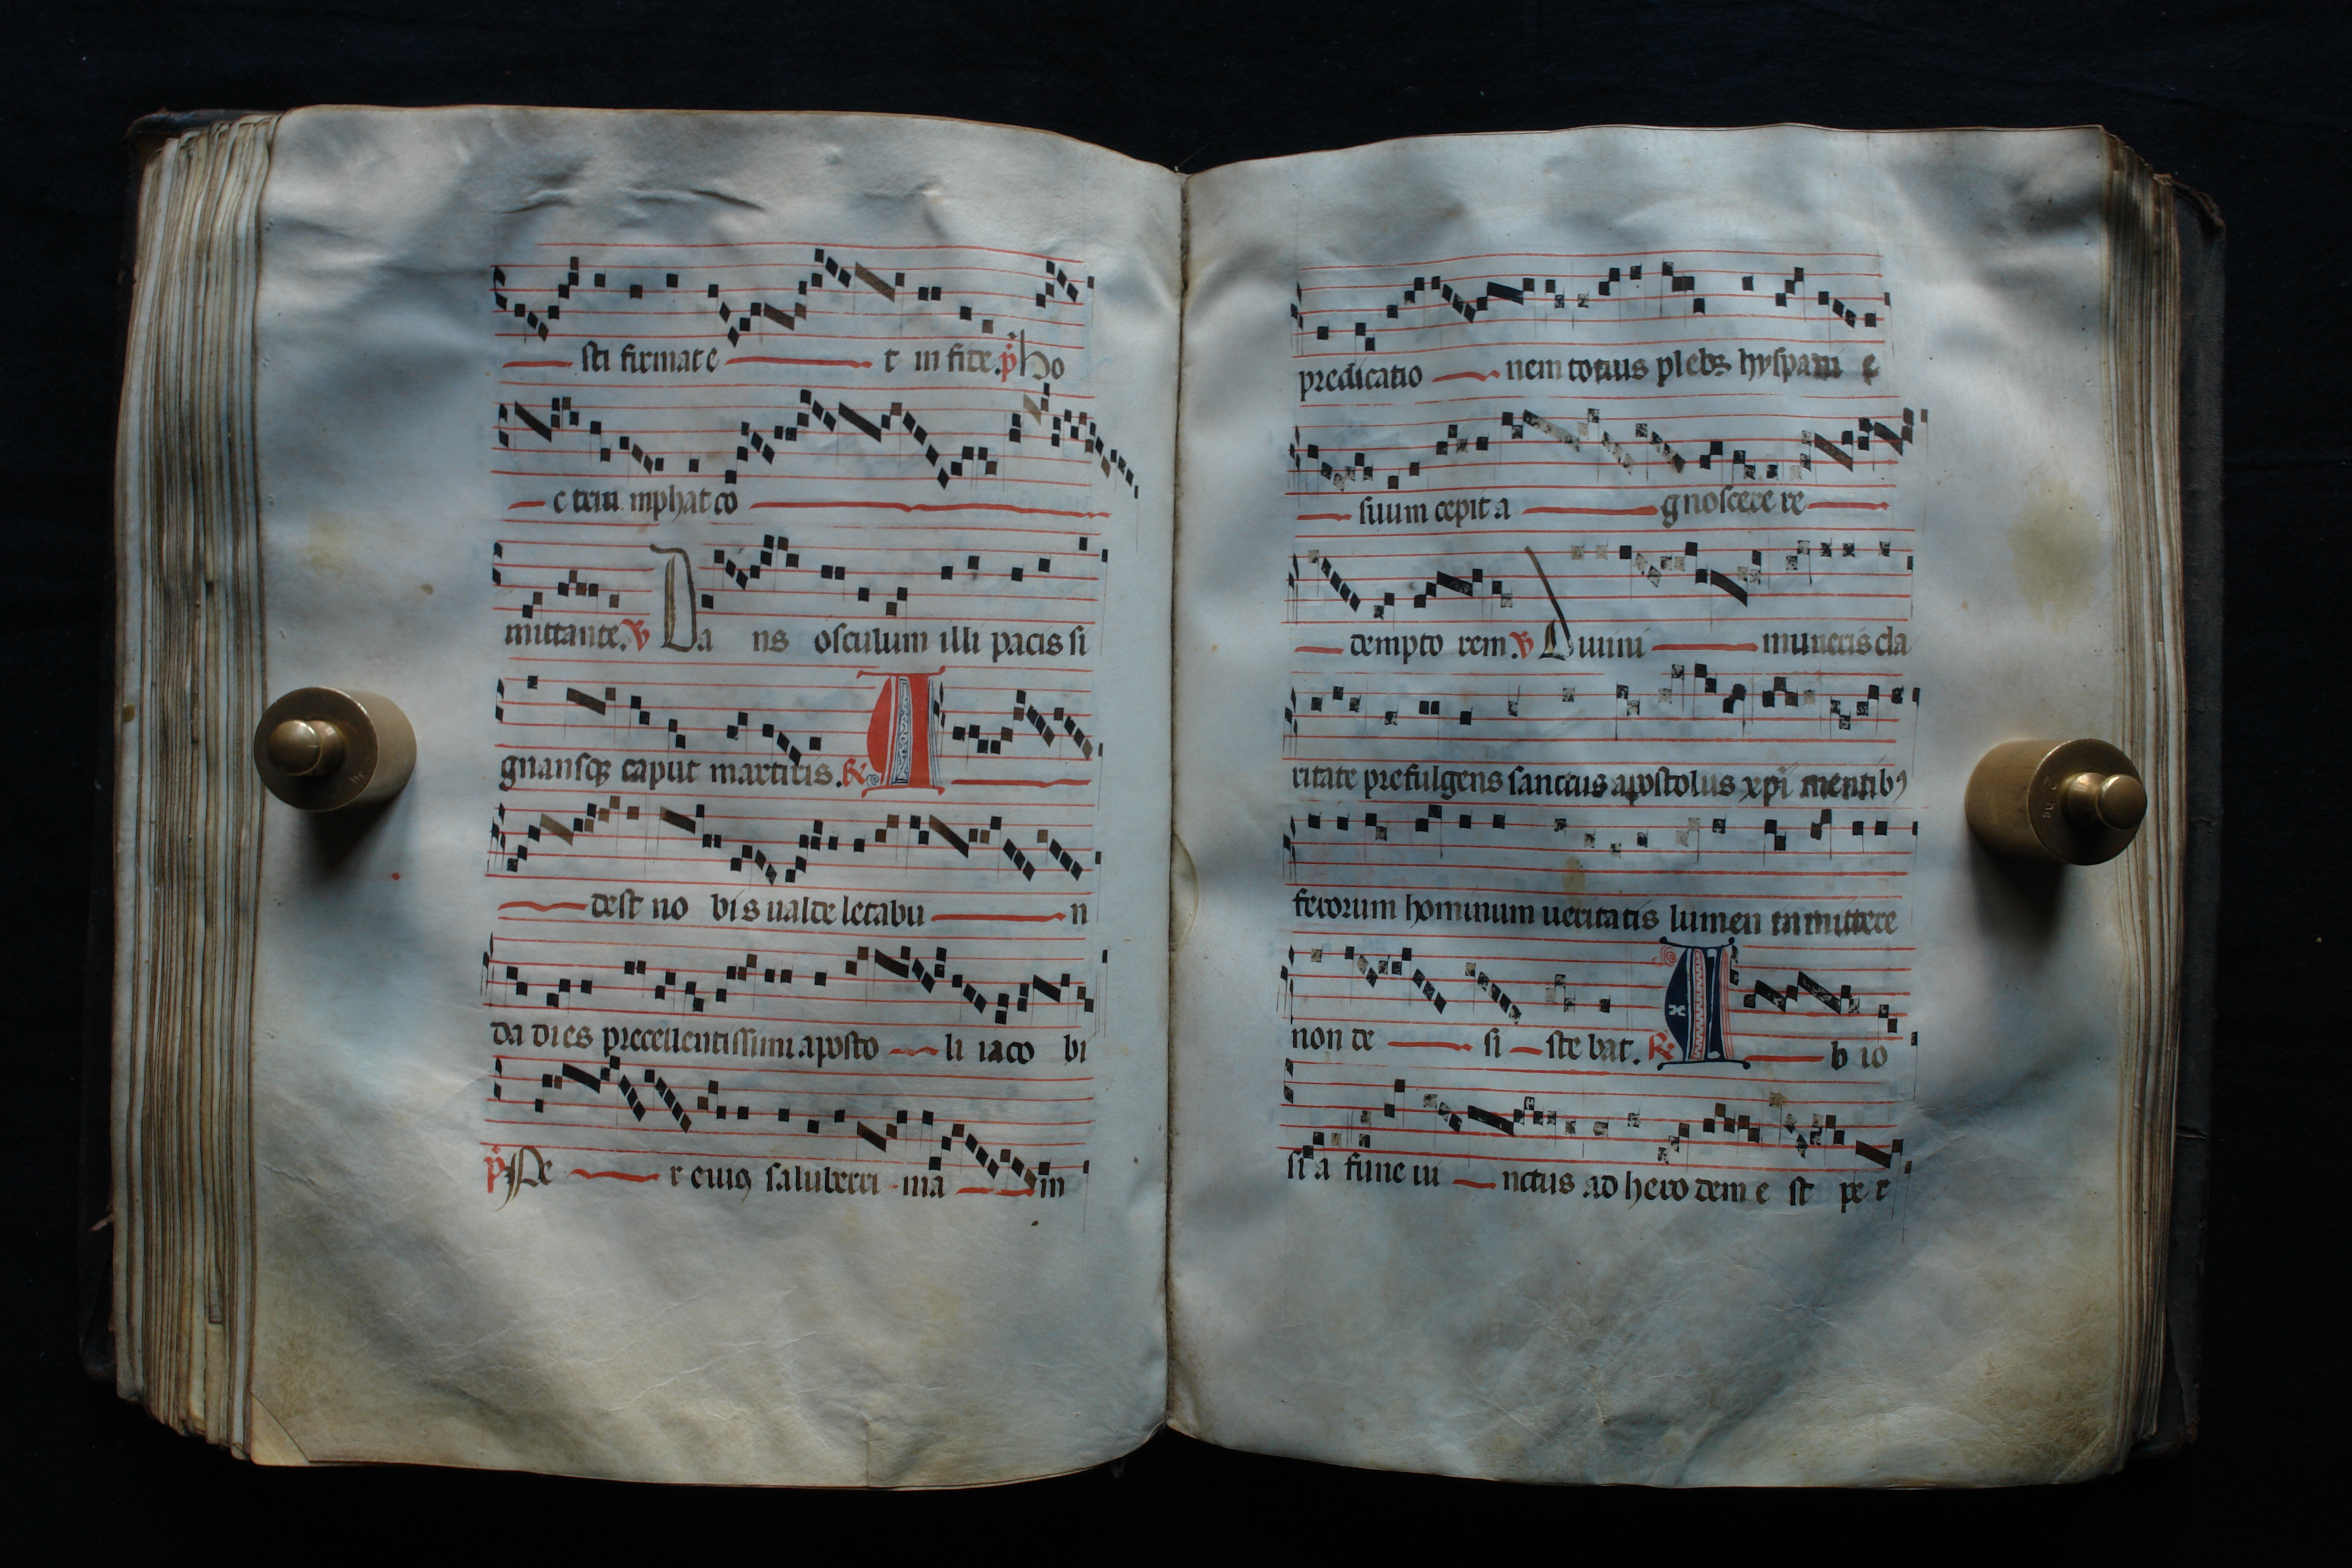 sti firmate t in fide. p Ho
c trium mphat co
mittante. V Da ns osculum illi pacis si
gnansqꝫ caput martiris. R A
dest no bis ualde letabu n
da dies precellentissimi aposto li iaco bi
p Pe r eiuꝯ saluberri ma in
predicatio nem totius plebꝫ hyspani e
suum cepit a gnoscere re
dempto rem. V Diuini muneris cla
ritate prefulgens sanctus apostolus xpi mentibꝰ
ferorum hominum ueritatis lumen inmittere
non de si ste bat. R A b io
si a fune iu nctus ad hero dem e st per